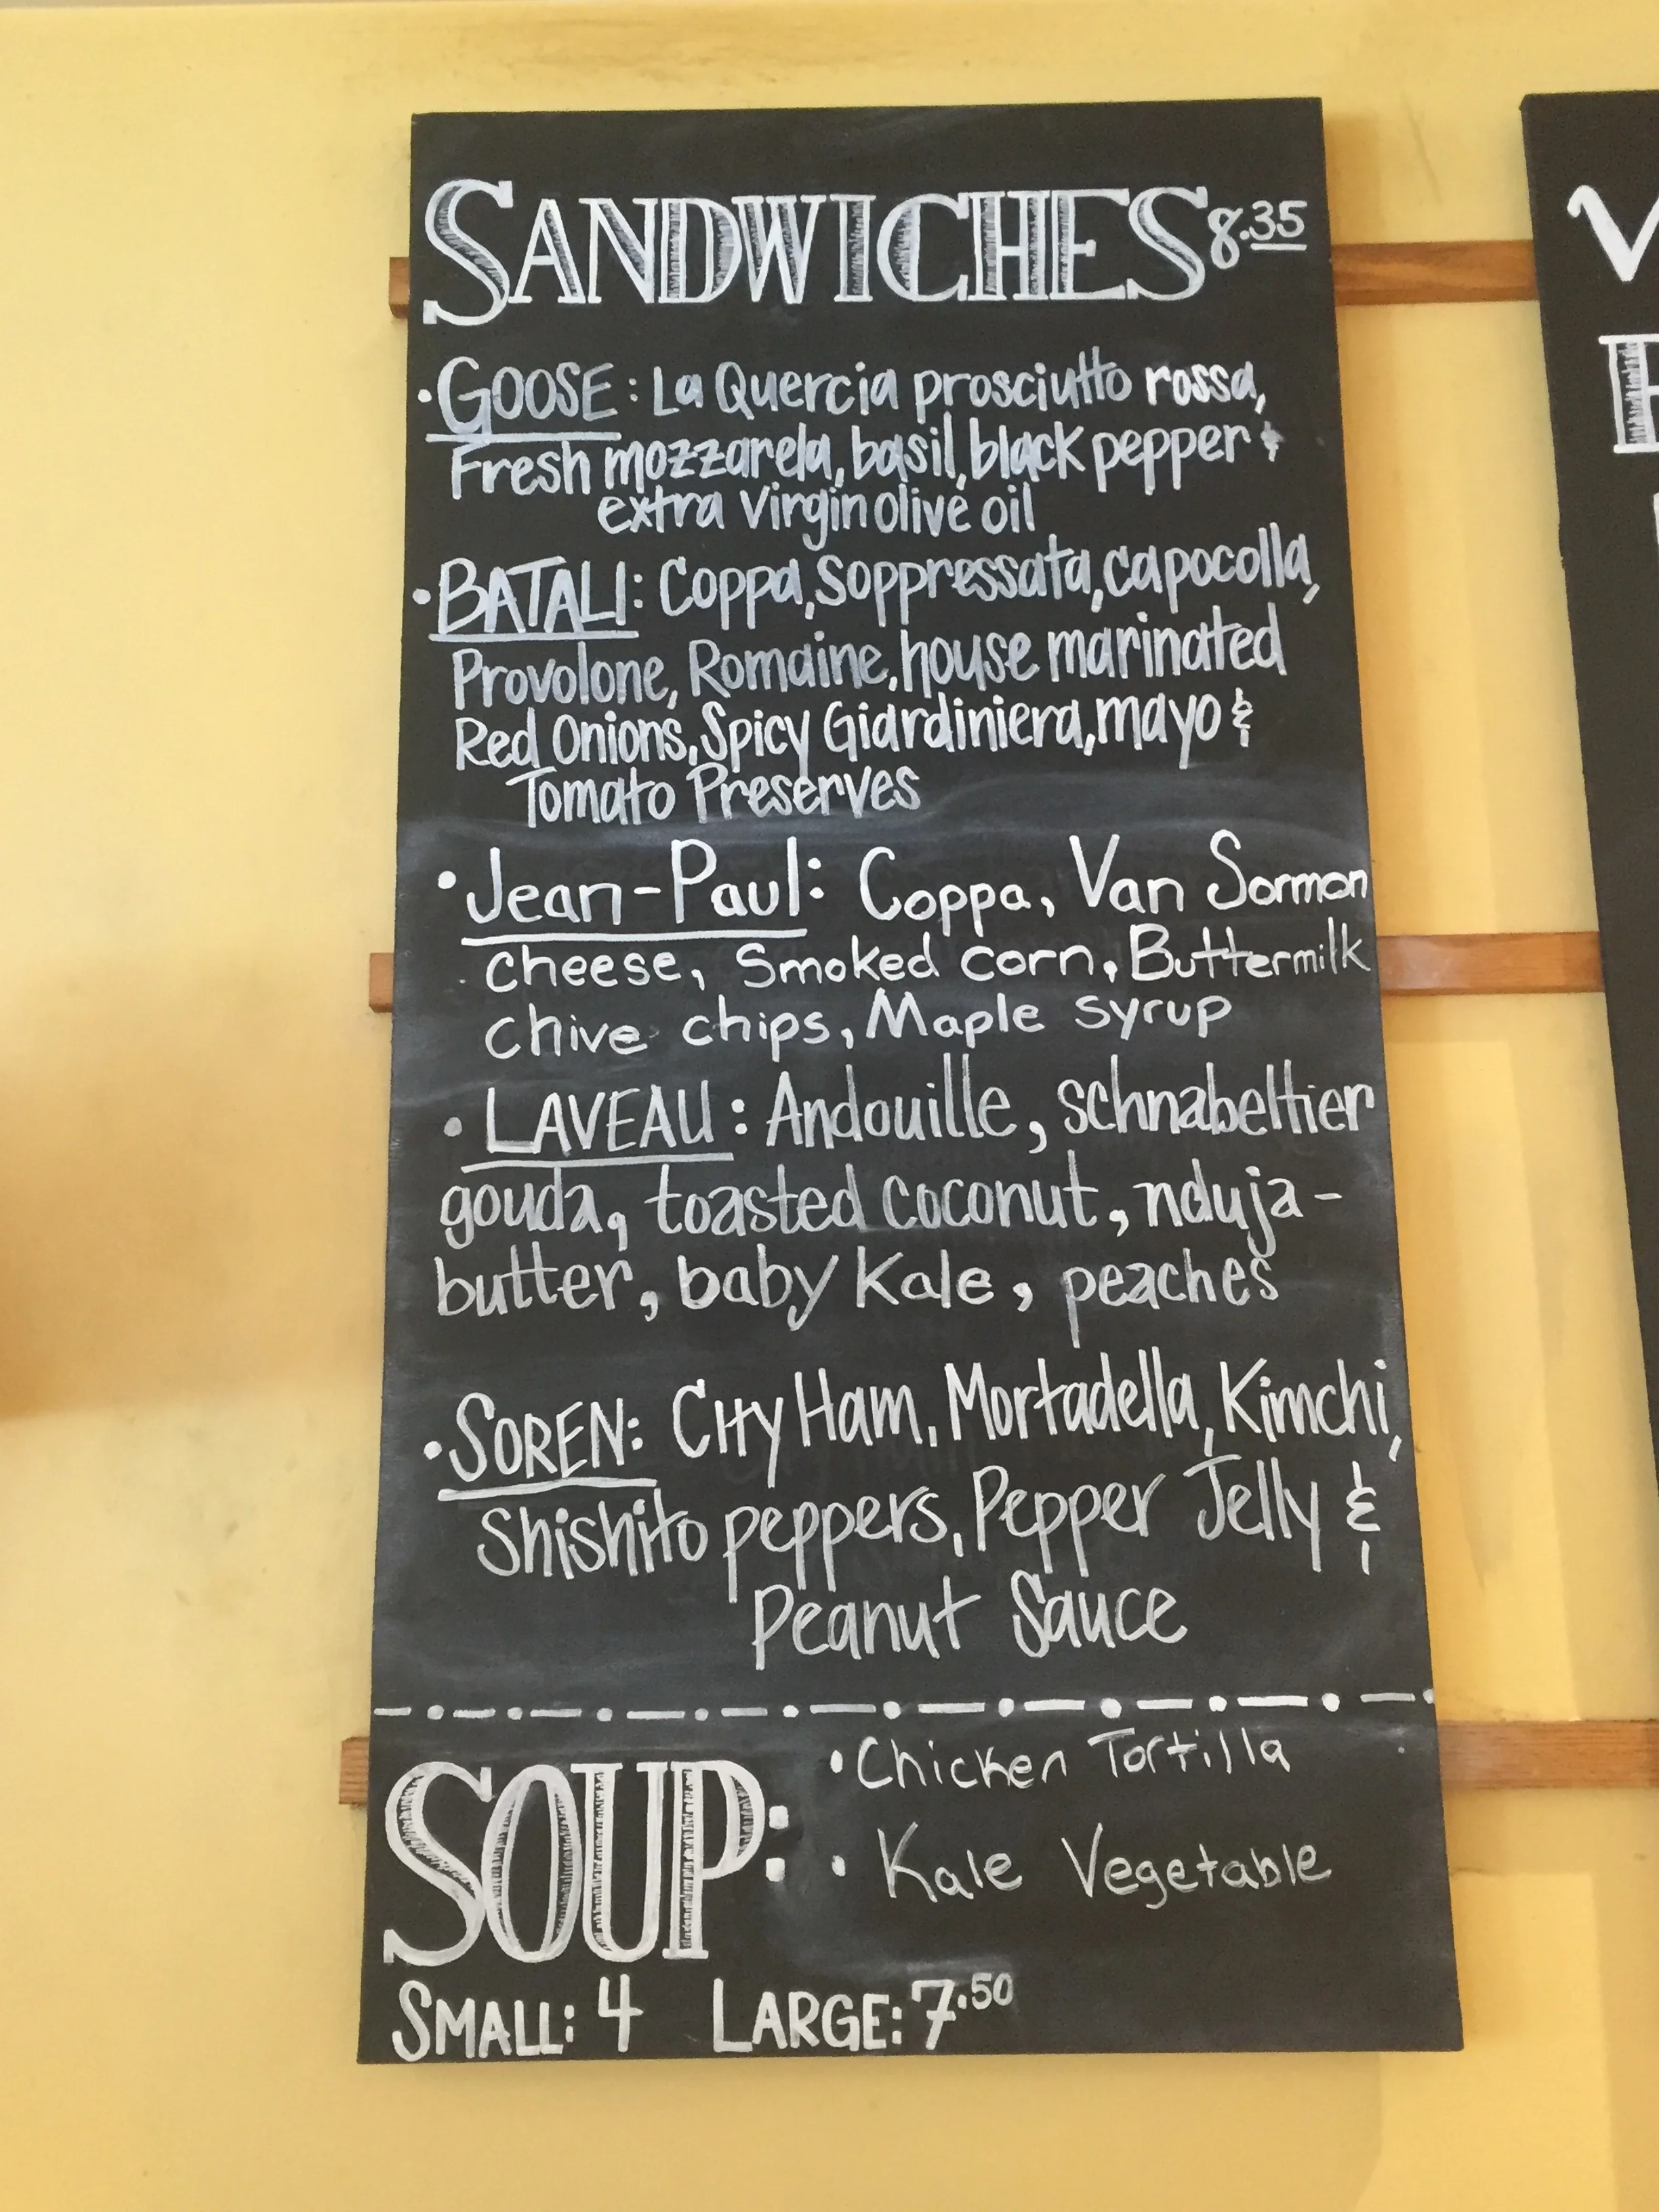 SANDWICHES 8.35
• GOOSE: La Quercia prosciutto rossa,
Fresh mozzarela, basil, black pepper &
extra virgin olive oil
• BATALI: Coppa, Soppressata, capocolla,
Provolone, Romaine, house marinated
Red Onions, Spicy Giardiniera, mayo &
Tomato Preserves
• Jean-Paul: Coppa, Van Sormon
cheese, Smoked corn, Buttermilk
chive chips, Maple syrup
• LAVEAU: Andouille, schnabeltier
gouda, toasted coconut, nduja-
butter, baby Kale, peaches
• SOREN: City Ham, Mortadella, Kimchi,
Shishito peppers, Pepper Jelly &
Peanut Sauce
SOUP: • Chicken Tortilla
• Kale Vegetable
SMALL: 4 LARGE: 7.50